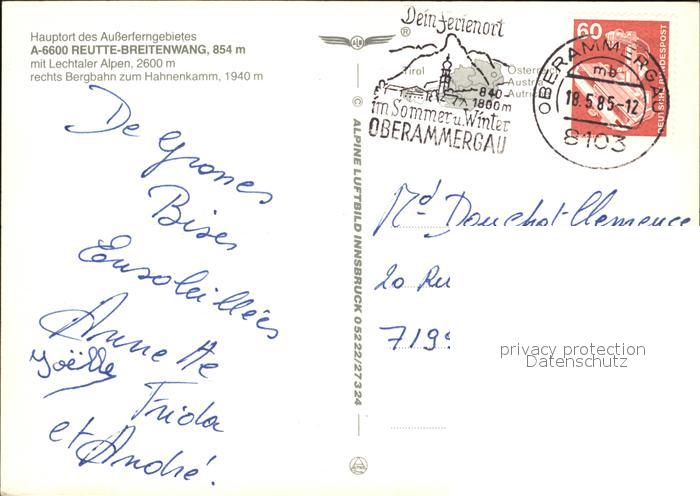 Hauptort des Außerferngebietes
A-6600 REUTTE-BREITENWANG, 854 m
mit Lechtaler Alpen, 2600 m
rechts Bergbahn zum Hahnenkamm, 1940 m
De Grosses
Bises
Ensoleillées
Annette
Joëlle
Frida
et André.
®
© ALPINE LUFTBILD INNSBRUCK 05222/27324
Dein Ferienort
Tirol
Österreich
Austria
Autriche
840-
1800m
im Sommer u. Winter
OBERAMMERGAU
60
DEUTSCHE BUNDESPOST
OBERAMMERGAU
mb
18.5.85-12
8103
Md Douchot-Clemence
20 Ru
719
privacy protection
Datenschutz